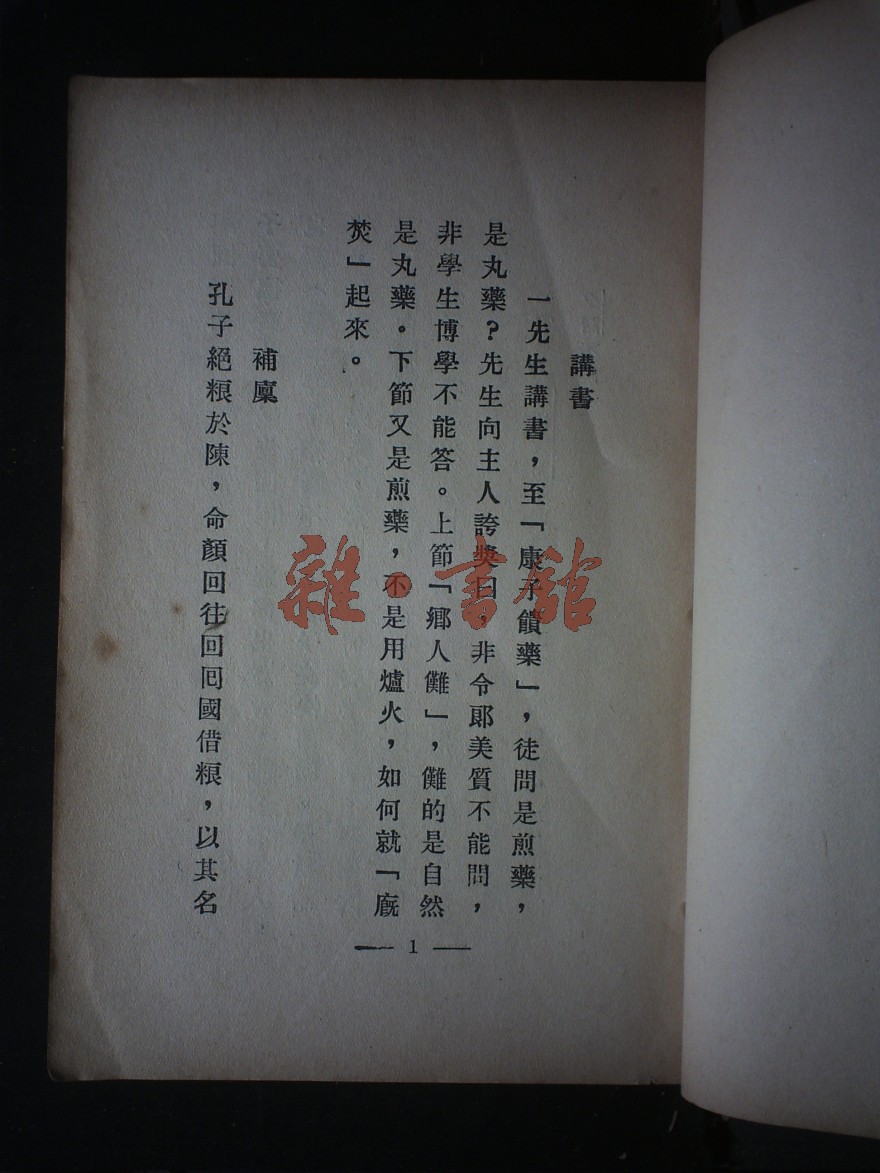 講書
一先生講書，至「康子饋藥」，徒問是煎藥，
是丸藥？先生向主人誇獎曰，非令郎美質不能問，
非學生博學不能答。上節「鄉人儺」，儺的是自然
是丸藥。下節又是煎藥，不是用爐火，如何就「廐
焚」起來。
補廩
孔子絕粮於陳，命顏回往回囘國借粮，以其名
— 1 —
雜·書館